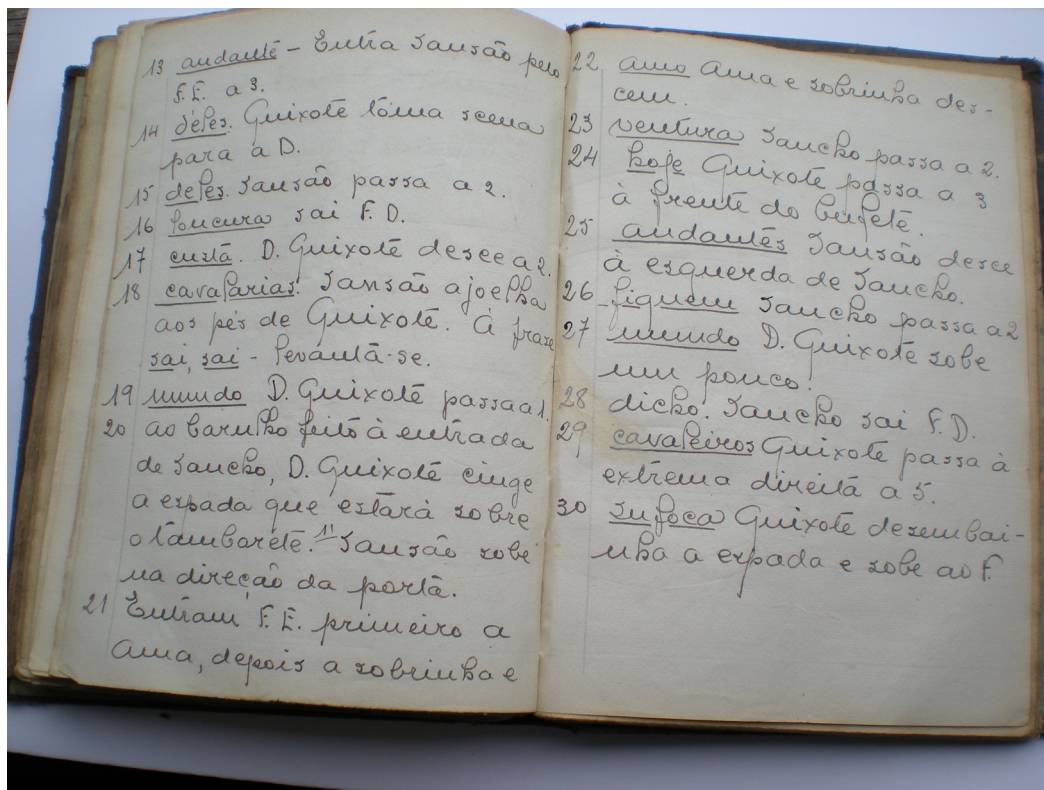 13 andante - Entra Sansão pelo
F.E. a 3.
14 deles. Quixote tóma scena
para a D.
15 deles. Sansão passa a 2.
16 loucura sai F.D.
17 custa. D. Quixote desce a 2.
18 cavalarias. Sansão ajoelha
aos pés de Quixote. À frase
sai, sai - levanta-se.
19 mundo D. Quixote passa a 1.
20 ao barulho feito à entrada
de Sancho, D. Quixote cinge
a espada que estará sobre
o tamborete. Sansão sobe
na direção da porta.
21 Entram, F.E. primeiro a
Ama, depois a sobrinha e
22 amo Ama e sobrinha des-
cem.
23 ventura Sancho passa a 2.
24 hoje Quixote passa a 3
à frente do bufete.
25 andantes Sansão desce
à esquerda de Sancho.
26 fiquem Sancho passa a 2
27 mundo D. Quixote sobe
um pouco.
28 dicho. Sancho sai F.D.
29 cavaleiros Quixote passa à
extrema direita a 5.
30 Sufoca Quixote desembai-
nha a espada e sobe ao F.